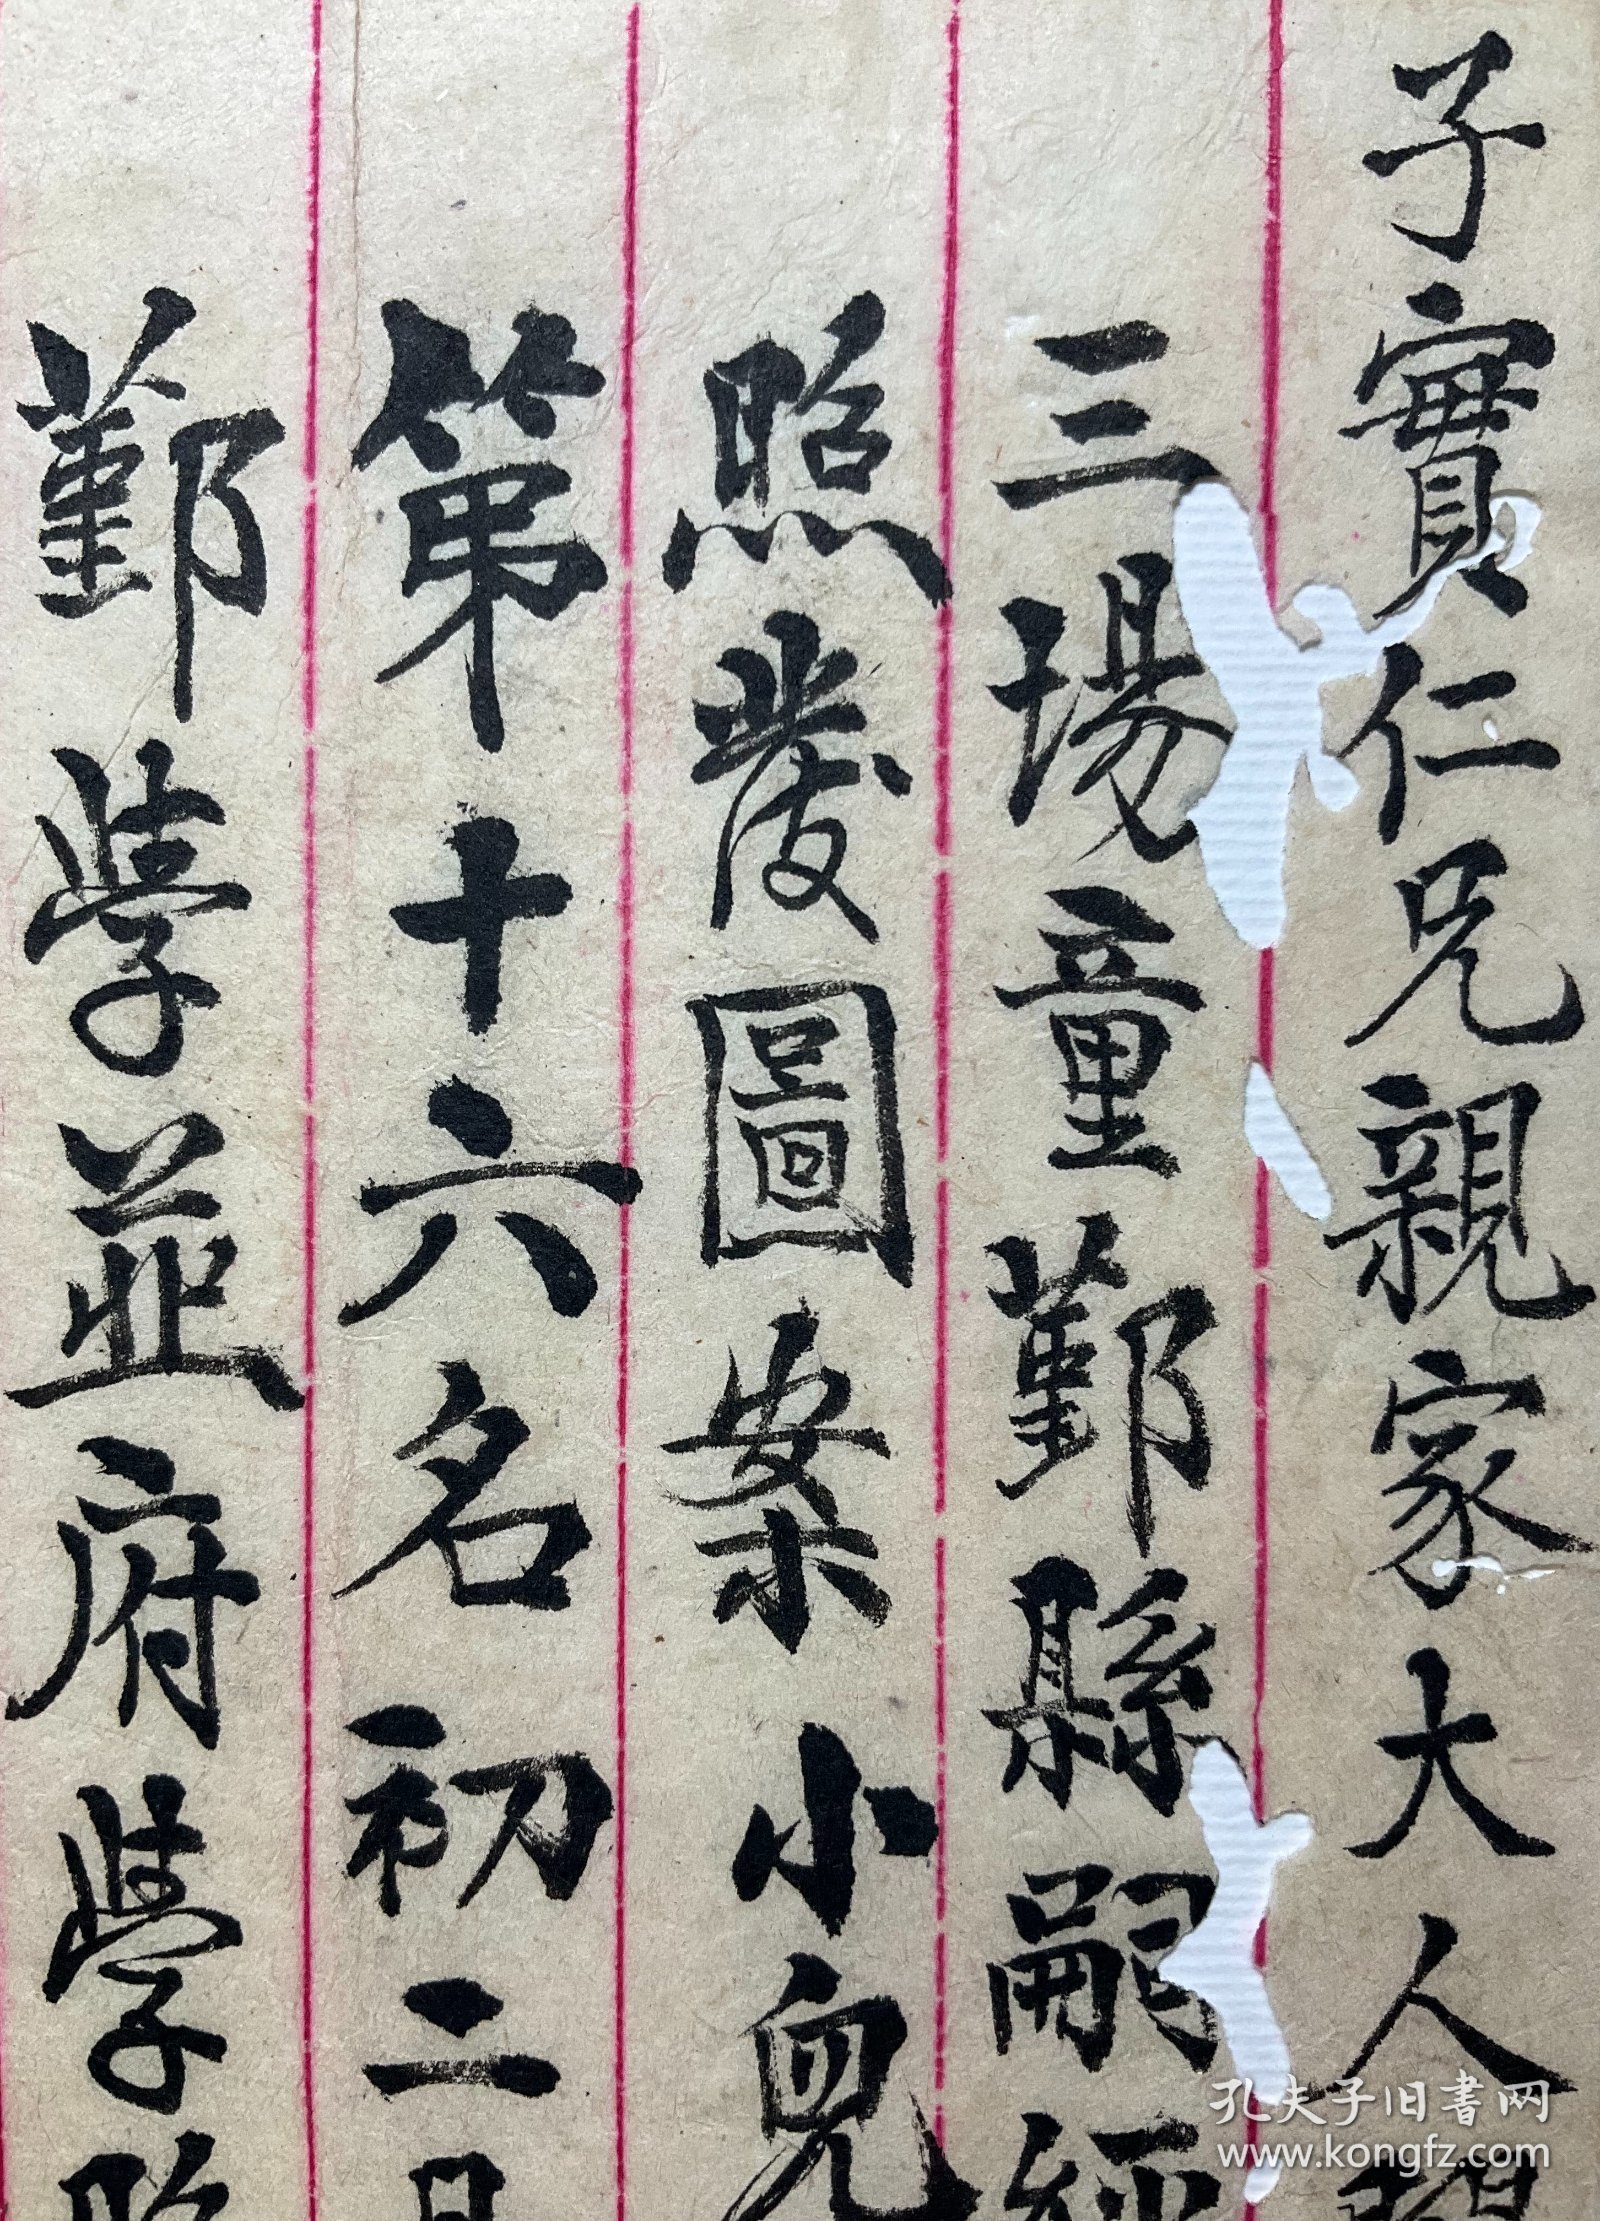 子實仁兄親家大人
三塲童鄞縣嗣經
照發圖案小兒
第十六名初二日
鄞學並府學
孔夫子旧書网
www.kongfz.com